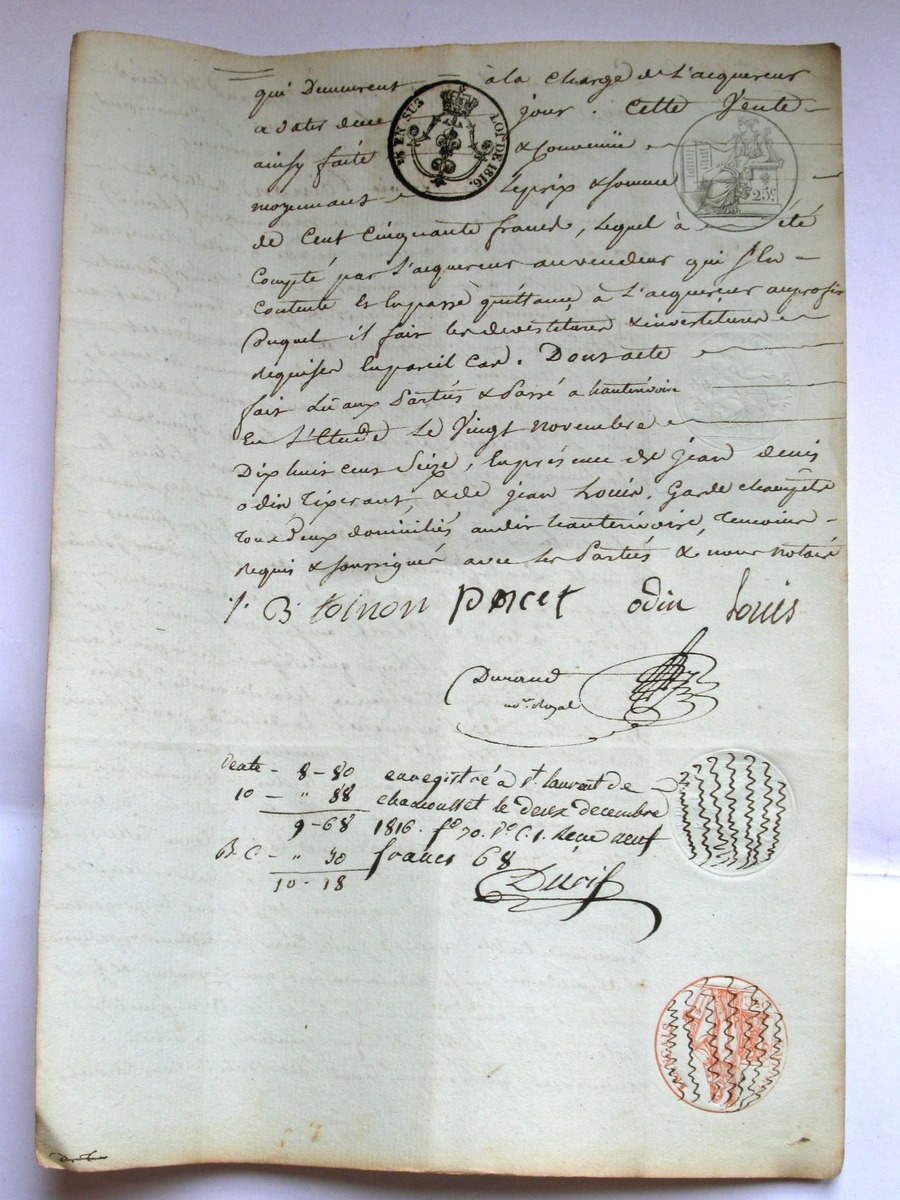 qui Demeurent à la Charge de L'acquereur
a dater de ce jour. Cette Vente
ainsy faite & Convenüe
moyennant Le prix & somme
de Cent Cinquante francs, Lequel à été
Compté par L'acquereur au vendeur qui s'en
Contente En passe quittance à L'acquereur au profit
Duquel il fait les devestitures & investitures
Requises En pareil Cas. Dont acte
fait Lû aux Parties & Passé a hauterivoire
En L'Etude Le Vingt novembre
Dix huit cent Seize, En présence de jean denis
odin Tixerant, & de jean Louis. Garde champêtre
Tous Deux domiciliés au dit hauterivoire, Temoins
Requis & soussignés avec Les Parties & nous notaire
B toinon poncet odin Louis
Durand
nore. Royal
Vente - 8 - 80 enregistré à St. laurent de
10 - " 88 chamousset le deux decembre
9 - 68 1816. fo 70. Vo C. 1. Recu neuf
B. C - " 50 francs 68
10 - 18
Durif
EN SUS LOI DE 1816.
25c.